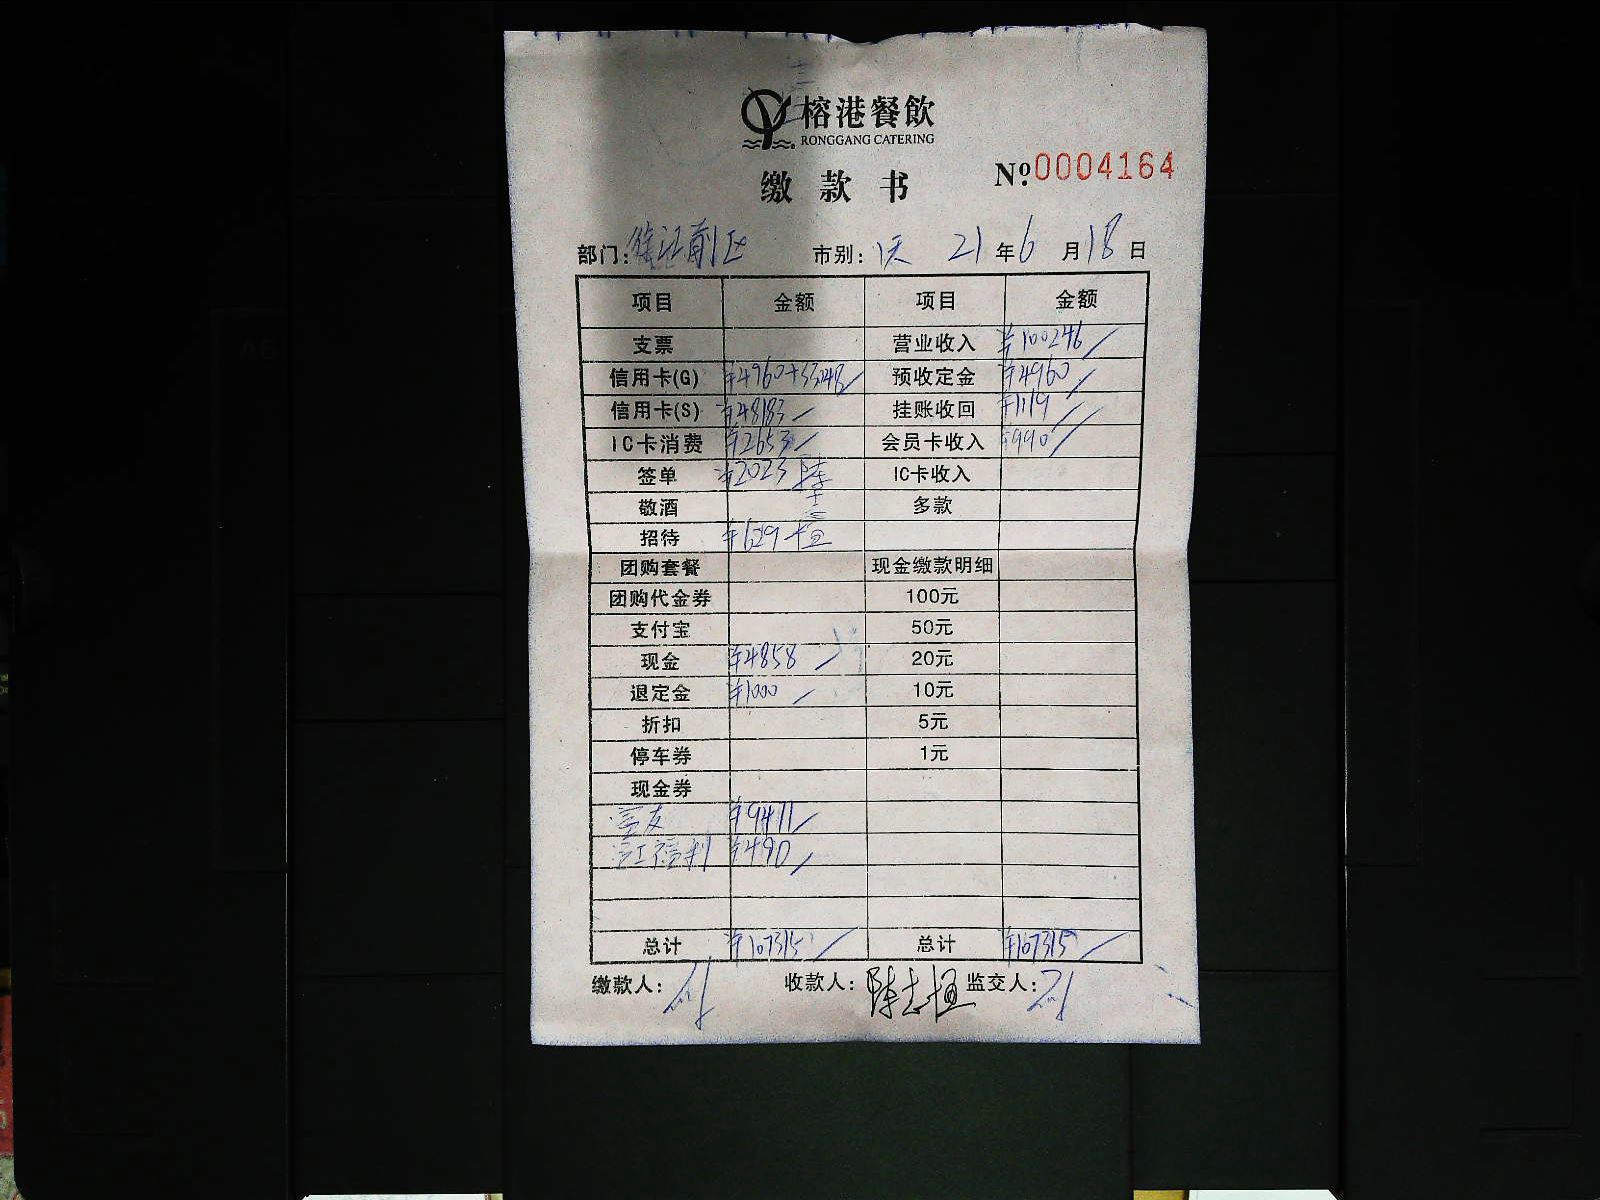 榕港餐飲
RONGGANG CATERING
缴款书
No.0004164
部门: 徐汇前区 市别: 1天 21年6月18日
项目 金额 项目 金额
支票 营业收入 ¥100246
信用卡(G) ¥4960+33148 预收定金 ¥4960
信用卡(S) ¥48183 挂账收回 ¥1119
IC卡消费 ¥2653 会员卡收入 ¥990
签单 ¥2023 IC卡收入
敬酒 多款
招待 ¥629
团购套餐 现金缴款明细
团购代金券 100元
支付宝 50元
现金 ¥4858 20元
退定金 ¥1000 10元
折扣 5元
停车券 1元
现金券
¥9411
福利 ¥490
总计 ¥107315 总计 ¥107315
缴款人: 收款人: 陈志恒 监交人: